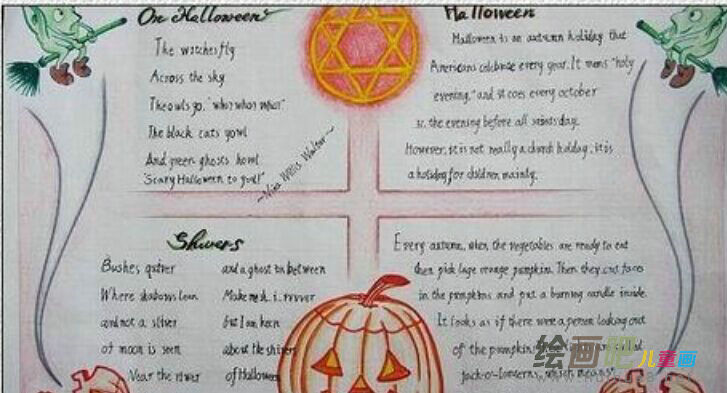 On Halloween
The watches fly
Across the sky
The owls go, "who? who? who?"
The black cats yowl
And green ghosts howl
"Scary Halloween to you!"
~Nina Willis Walter~
Halloween
Halloween is an autumn holiday that
Americans celebrate every year. It means "holy
evening," and it coes every october
31, the evening before all saints day.
However, it is not really a church holiday, it is
a holiday for children mainly.
Shivers
Bushes quiver
Where shadows lean
and not a sliver
of moon is seen
Near the river
and a ghost in between
Make me sh..i..rvver
but I am keen
about the shivers
of Halloween
Every autumn, when the vegetables are ready to eat
then pick large orange pumpkin. Then they cut faces
in the pumpkins and put a burning candle inside.
It looks as if there were a person looking out
of the pumpkin.
jack-o'-lanterns, which means
绘画吧儿童画